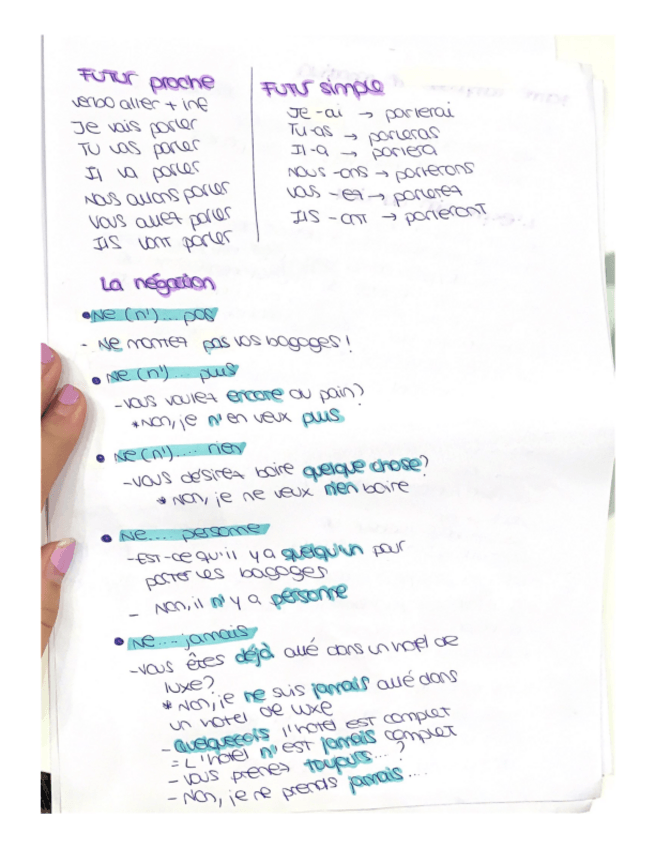 Futur proche
verbo aller + inf
Je vais parler
Tu vas parler
Il va parler
Nous allons parler
Vous allez parler
Ils vont parler
Futur simple
Je -ai → parlerai
Tu -as → parleras
Il -a → parlera
Nous -ons → parlerons
Vous -ez → parlerez
Ils -ont → parleront
La négation
• Ne (n')... pas
- Ne montez pas vos bagages!
• Ne (n')... plus
- Vous voulez encore du pain?
* Non, je n'en veux plus
• Ne (n').... rien
- Vous désirez boire quelque chose?
* Non, je ne veux rien boire
• Ne.... personne
- Est-ce qu'il y a quelqu'un pour
porter les bagages
- Non, il n'y a personne
• Ne.... jamais
- Vous êtes déjà allé dans un hotel de
luxe?
* Non, je ne suis jamais allé dans
un hotel de luxe
- Quelquefois l'hotel est complet
= L'hotel n'est jamais complet
- Vous prenez toujours...?
- Non, je ne prends jamais....